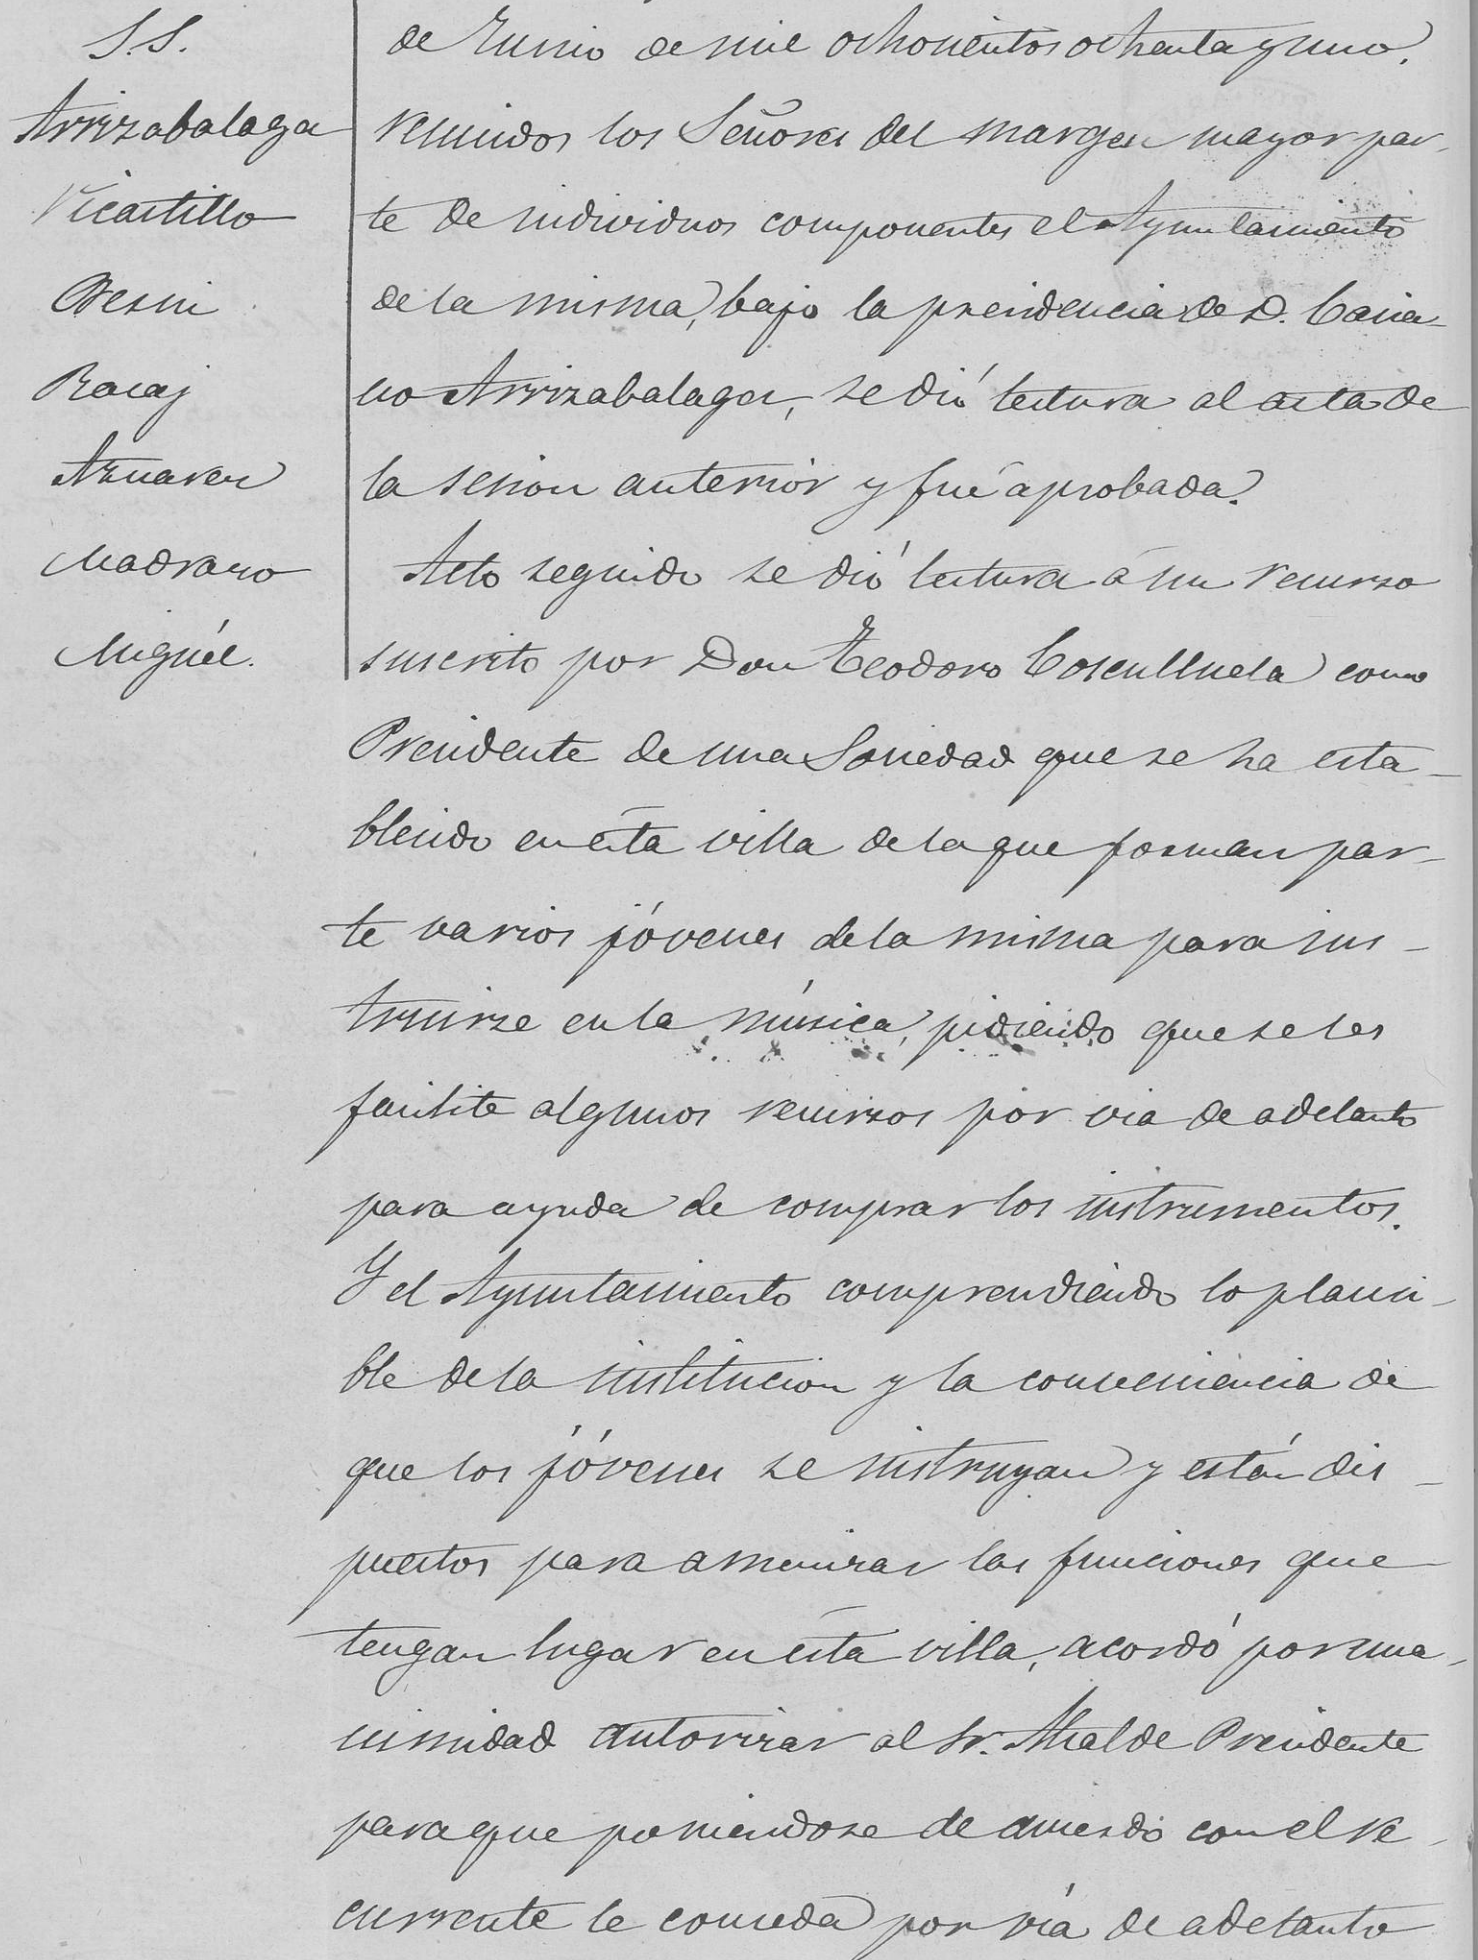 S.S.
Arrizabalaga
Vicastillo
Besni
Racaj
Aznarez
Madrazo
Miguél.
de Junio de mil ochocientos ochenta y uno,
reunidos los Señores del margen mayor par-
te de individuos componentes el Ayuntamiento
de la misma, bajo la presidencia de D. Casia-
no Arrizabalaga, se dió lectura al acta de
la sesion anterior y fué aprobada.
Acto seguido se dió lectura á un recurso
suscrito por Don Teodoro Coscullnela como
Presidente de una Sociedad que se ha esta-
blecido en ésta villa de la que forman par-
te varios jóvenes de la misma para ins-
truirse en la música, pidiendo que se les
facilite algunos recursos por via de adelanto
para ayuda de comprar los instrumentos.
Y el Ayuntamiento comprendiendo lo plausi-
ble de la institucion y la conveniencia de
que los jóvenes se instruyan y están dis-
puestos para amenizar las funciones que
tengan lugar en ésta villa, acordó por una-
nimidad autorizar al Sr. Alcalde Presidente
para que poniendose de acuerdo con el re-
currente le conceda por vía de adelanto